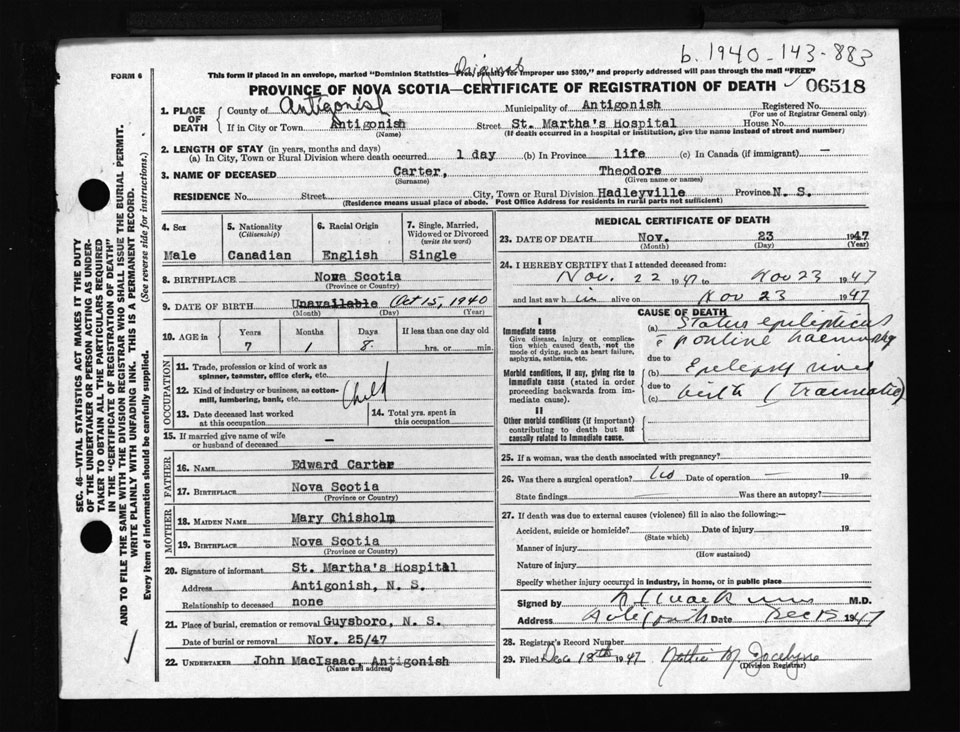 b. 1940-143-883
FORM 6
Original
This form if placed in an envelope, marked "Dominion Statistics—Free, penalty for improper use $300," and properly addressed will pass through the mail "FREE"
PROVINCE OF NOVA SCOTIA—CERTIFICATE OF REGISTRATION OF DEATH 06518
1. PLACE OF DEATH County of Antigonish Municipality of Antigonish Registered No.
(For use of Registrar General only)
If in City or Town Antigonish Street St. Martha's Hospital House No.
(Name) (If death occurred in a hospital or institution, give the name instead of street and number)
2. LENGTH OF STAY (in years, months and days)
(a) In City, Town or Rural Division where death occurred 1 day (b) In Province life (c) In Canada (if immigrant) —
3. NAME OF DECEASED Carter, Theodore
(Surname) (Given name or names)
RESIDENCE No. Street City, Town or Rural Division Hadleyville Province N. S.
(Residence means usual place of abode. Post Office Address for residents in rural parts not sufficient)
4. Sex Male
5. Nationality (Citizenship) Canadian
6. Racial Origin English
7. Single, Married, Widowed or Divorced (write the word) Single
8. BIRTHPLACE Nova Scotia
(Province or Country)
9. DATE OF BIRTH Unavailable Oct 15, 1940
(Month) (Day) (Year)
10. AGE in Years Months Days If less than one day old
7 1 8 hrs. or min.
OCCUPATION
11. Trade, profession or kind of work as spinner, teamster, office clerk, etc.
12. Kind of industry or business, as cotton-mill, lumbering, bank, etc. Child
13. Date deceased last worked at this occupation
14. Total yrs. spent in this occupation
15. If married give name of wife or husband of deceased —
FATHER
16. NAME Edward Carter
17. BIRTHPLACE Nova Scotia
(Province or Country)
MOTHER
18. MAIDEN NAME Mary Chisholm
19. BIRTHPLACE Nova Scotia
(Province or Country)
20. Signature of informant St. Martha's Hospital
Address Antigonish, N. S.
Relationship to deceased none
21. Place of burial, cremation or removal Guysboro, N. S.
Date of burial or removal Nov. 25/47
22. UNDERTAKER John MacIsaac, Antigonish
(Name and address)
MEDICAL CERTIFICATE OF DEATH
23. DATE OF DEATH Nov. 23 1947
(Month) (Day) (Year)
24. I HEREBY CERTIFY that I attended deceased from:
Nov. 22 1947 to Nov 23 1947
and last saw him alive on Nov 23 1947
CAUSE OF DEATH
I
Immediate cause
Give disease, injury or complication which caused death, not the mode of dying, such as heart failure, asphyxia, asthenia, etc.
(a) Status epilepticus
pontine haemorrhage
due to
Morbid conditions, if any, giving rise to immediate cause (stated in order proceeding backwards from immediate cause).
(b) Epilepsy since
due to
(c) birth (traumatic)
II
Other morbid conditions (if important) contributing to death but not causally related to immediate cause.
25. If a woman, was the death associated with pregnancy?
26. Was there a surgical operation? No Date of operation 19
State findings Was there an autopsy?
27. If death was due to external causes (violence) fill in also the following:—
Accident, suicide or homicide? Date of injury 19
(State which)
Manner of injury
(How sustained)
Nature of injury
Specify whether injury occurred in industry, in home, or in public place
Signed by M.D.
Address Antigonish Date Dec 15 1947
28. Registrar's Record Number
29. Filed Dec 18th 1947 Nettie M. Jocelyne
(Division Registrar)
SEC. 46—VITAL STATISTICS ACT MAKES IT THE DUTY
OF THE UNDERTAKER OR PERSON ACTING AS UNDER-
TAKER TO OBTAIN ALL THE PARTICULARS REQUIRED
IN THE "CERTIFICATE OF REGISTRATION OF DEATH"
AND TO FILE THE SAME WITH THE DIVISION REGISTRAR WHO SHALL ISSUE THE BURIAL PERMIT.
WRITE PLAINLY WITH UNFADING INK. THIS IS A PERMANENT RECORD.
Every item of information should be carefully supplied. (See reverse side for instructions.)